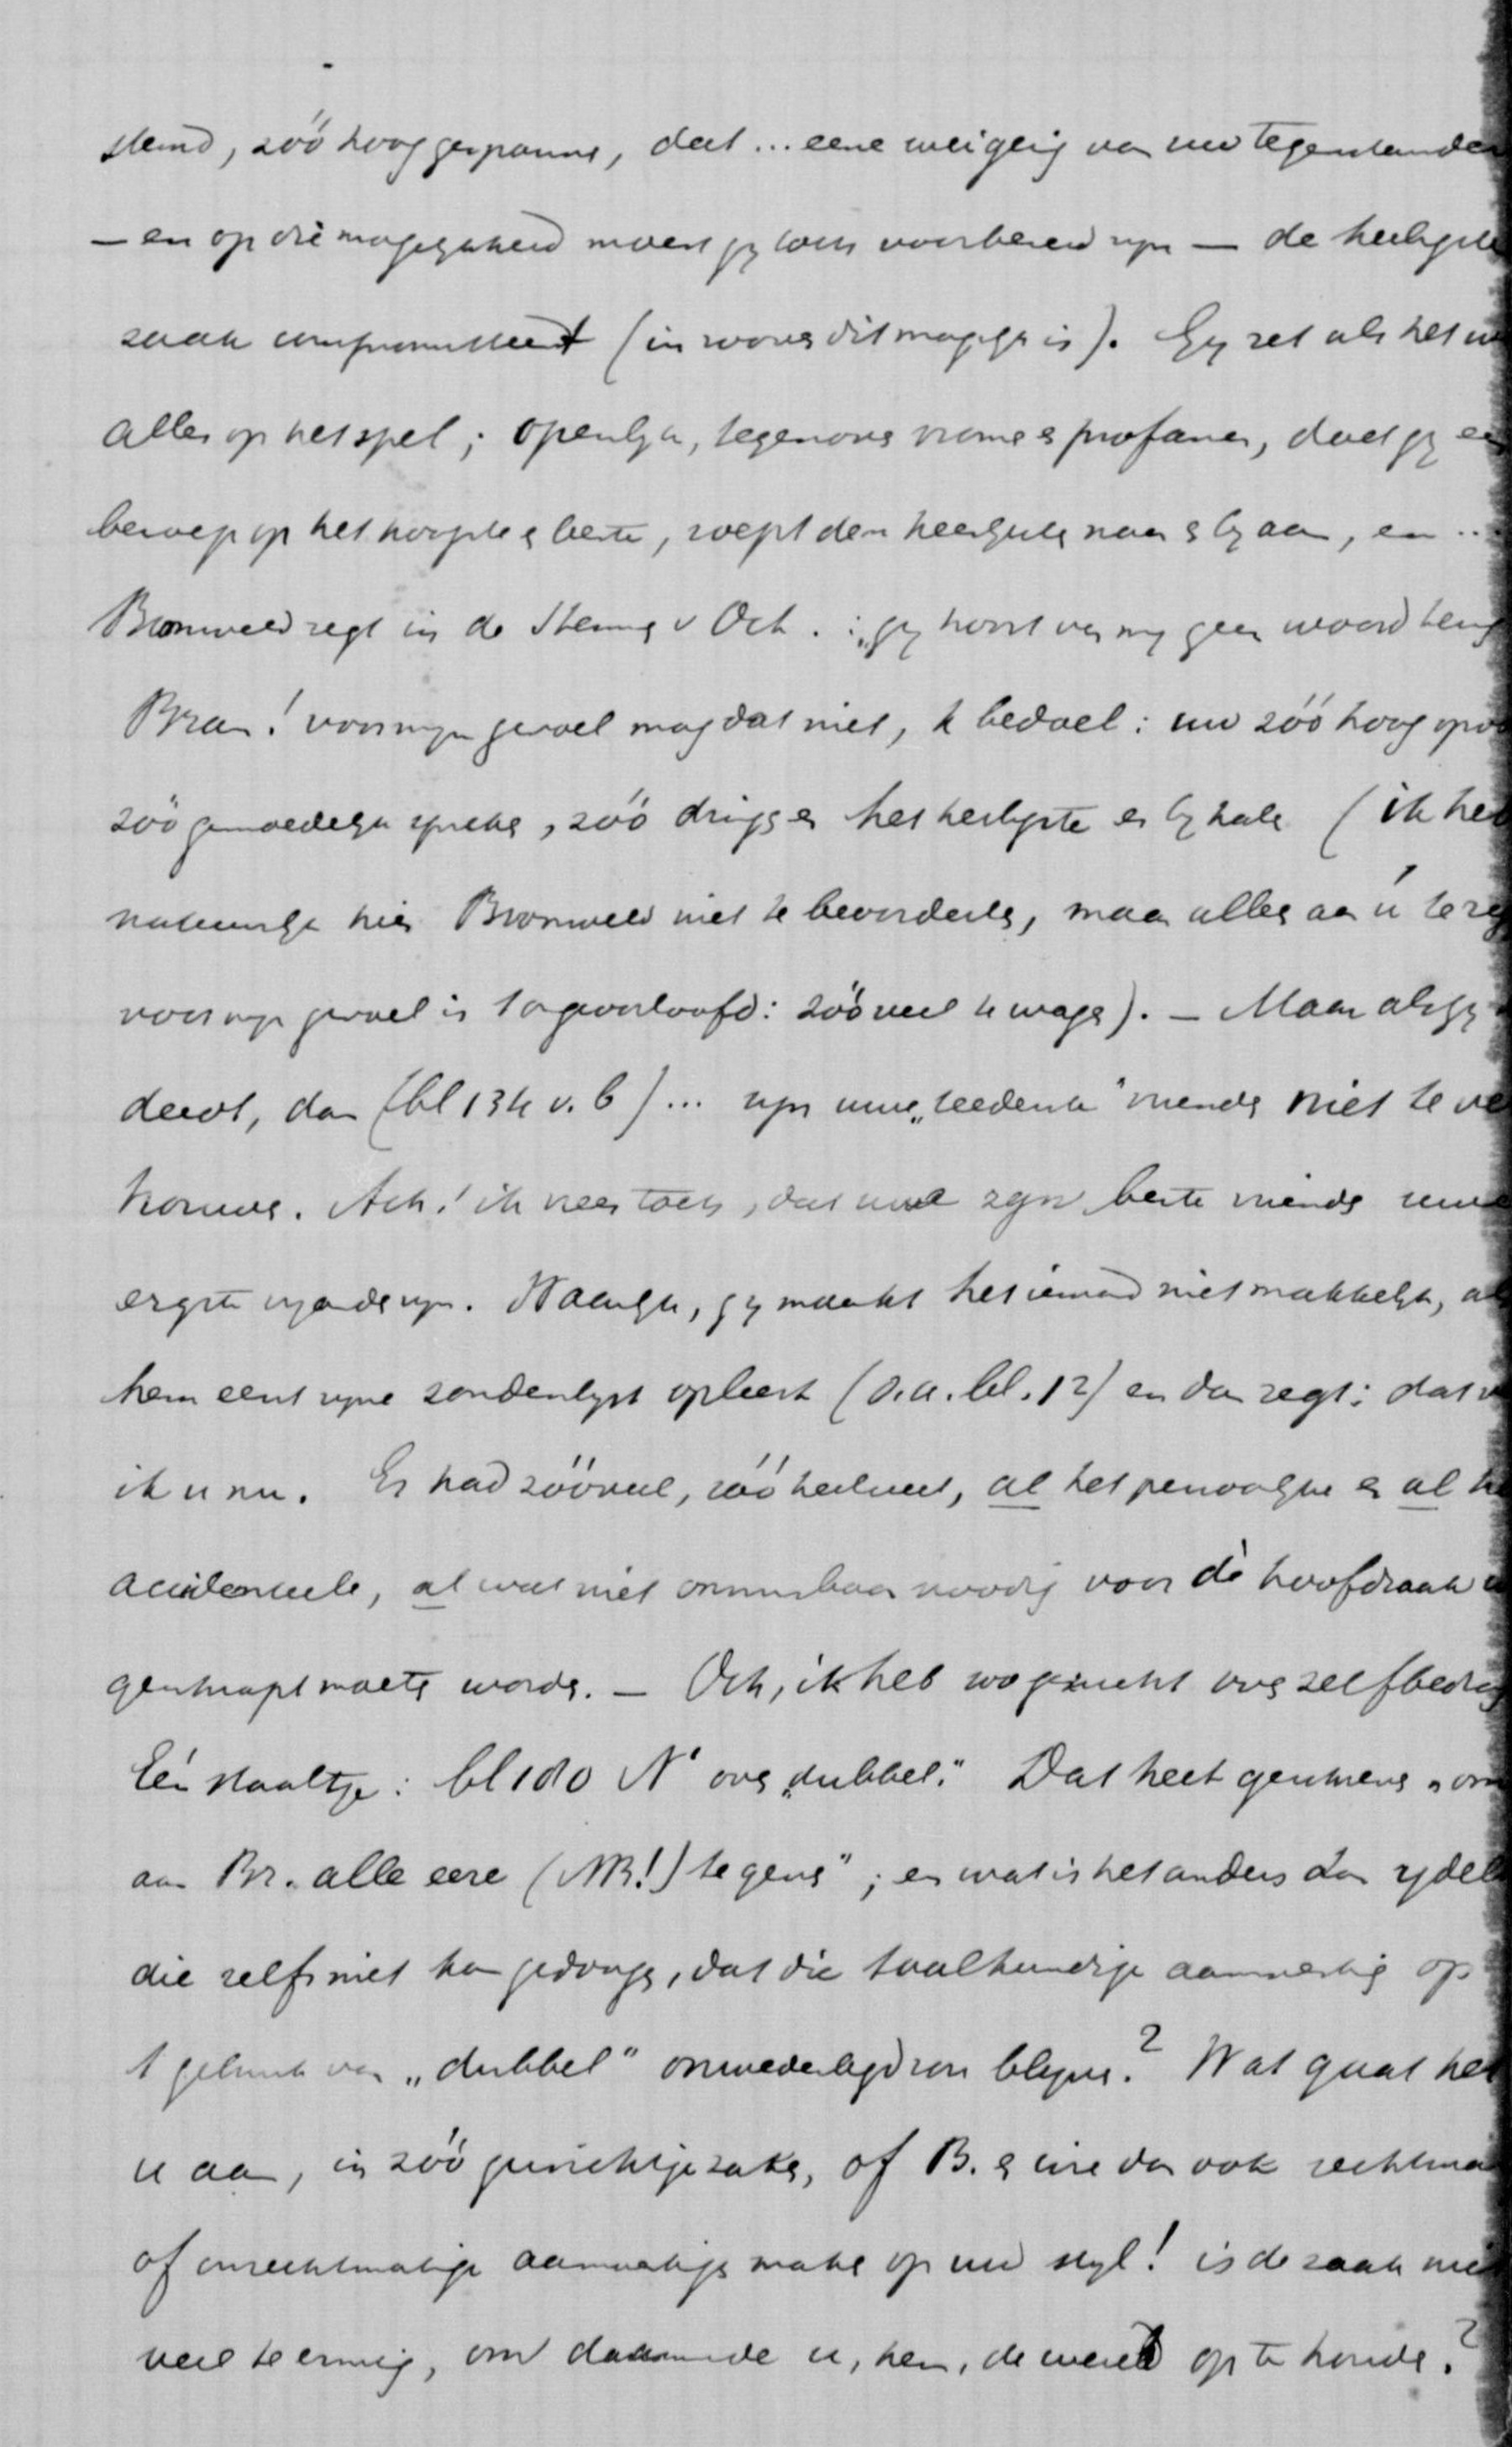 stemd, zóó hoog gespannen, dat ... eene weigering van uw tegenstander
— en op die mogelijkheid moest gij toch voorbereid zijn — de heiligste
zaak compromitteert (in zoover dit mogelijk is). Gij zet als het w
alles op het spel; openlijk, tegenover vrome en profanen, doet gij ee
beroep op het hoogste en beste, roept den heer Jezus naar u bij aan, en ...
Bronsveld zegt in de Stemmen v Oct.: „gij hoort van mij geen woord teru
Bram! voor mijn gevoel mag dat niet, ik bedoel: uw zóó hoog op
zóó gemoedelijk spreken, zóó dringen, het heiligste er bij halen (ik heb
natuurlijk hier Bronsveld niet te beoordeelen, maar alleen aan ú te ze
voor mijn gevoel is 't ongeoorloofd: zóóveel te wagen). — Maar als gij
deedt, dan (bl 134 v. b) ... zijn uwe „teederste" vrienden niet te ve
komen. Ach! ik vrees toch, dat uw zijn beste vrienden uwe
ergste vijanden zijn. Waarlijk, gij maakt het iemand niet makkelijk, al
hem eerst zijne zondenlijst opleest (o.a. bl. 12) en dan zegt: dat v
ik u nu. Er had zóóveel, zóó heel veel, al het persoonlijke en al he
accidenteele, al wat niet onmisbaar noodig voor dè hoofdzaak
geschrapt moeten worden. — Och, ik heb zoo gezucht over zelfbedro
Eén staaltje: bl 180 N over „dubbel." Dat heet geschreven „om
aan Br. alle eere (NB!) te geven"; en wat is het anders dan ijdel
die zelfs niet kan gedoogen, dat die taalkundige aanmerking op
't gebruik van „dubbel" onwederlegd zou blijven? Wat gaat het
u aan, in zóó gewichtige zaken, of B. en wie dan ook rechtma
of onrechtmatige aanmerkingen maken op uw stijl! is de zaak nie
veel te ernstig, om daarmede u, hem, de wereld op te houden?